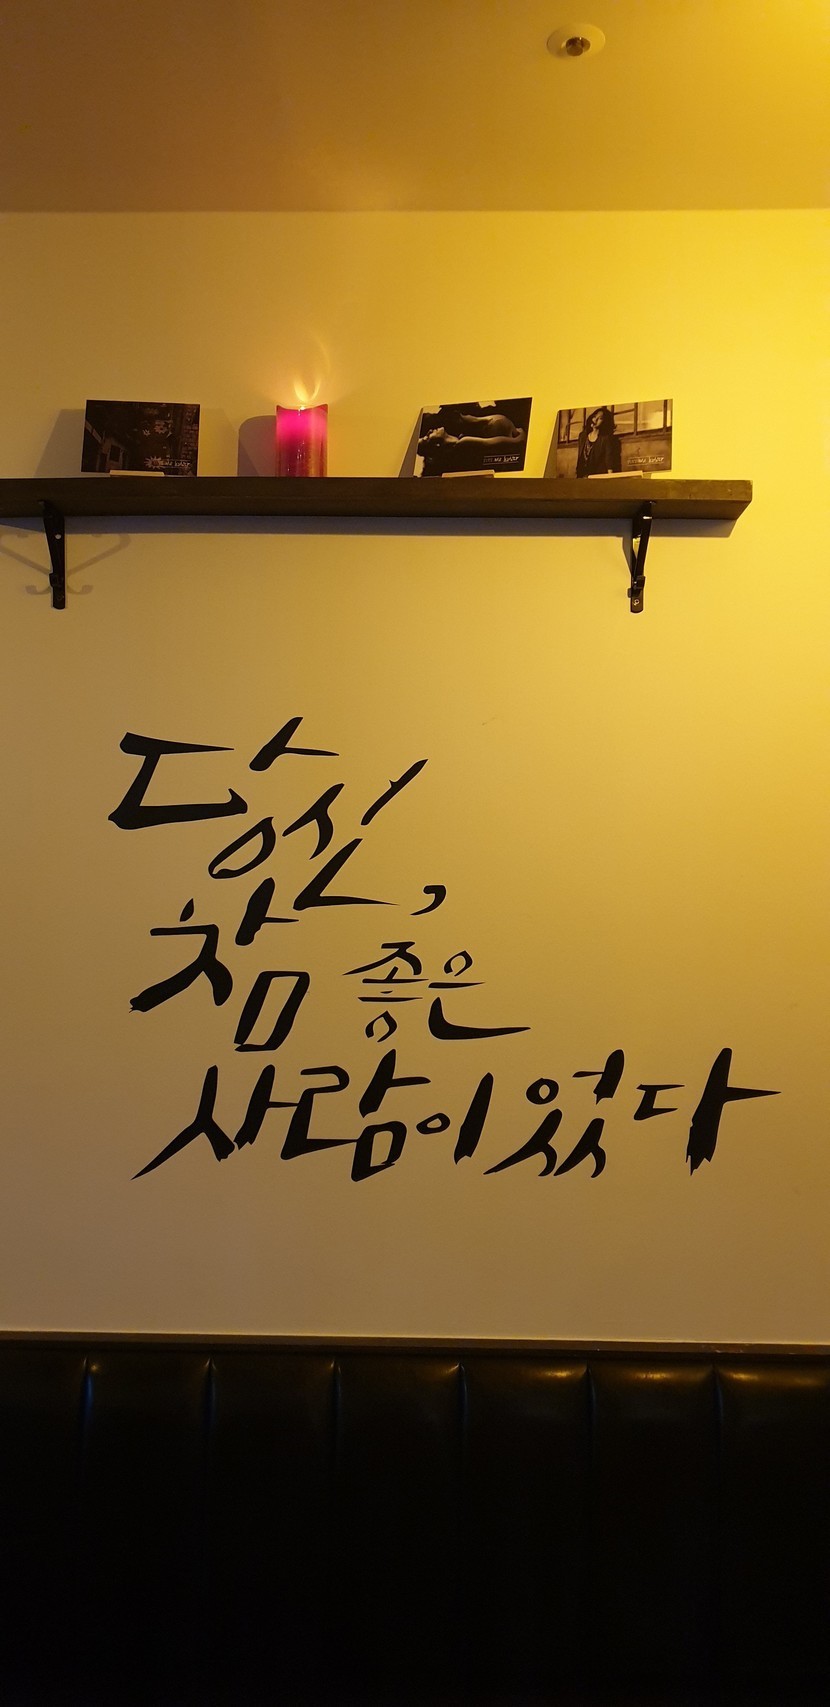 당신,
참 좋은
사람이었다